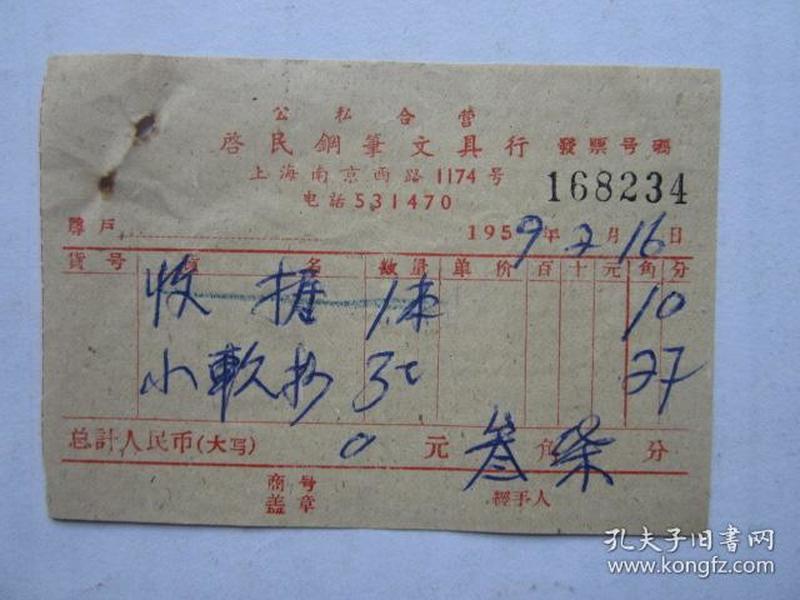 公私合营
啓民鋼筆文具行 發票号碼
上海南京西路1174号 168234
电話531470
尊戶 1959年2月16日
貨号 貨名 数量 单价 百十元角分
收据 1本 10
小軟抄 3 27
总計人民币(大写) 0元叁角柒分
商号
盖章 經手人
孔夫子旧书网
www.kongfz.com